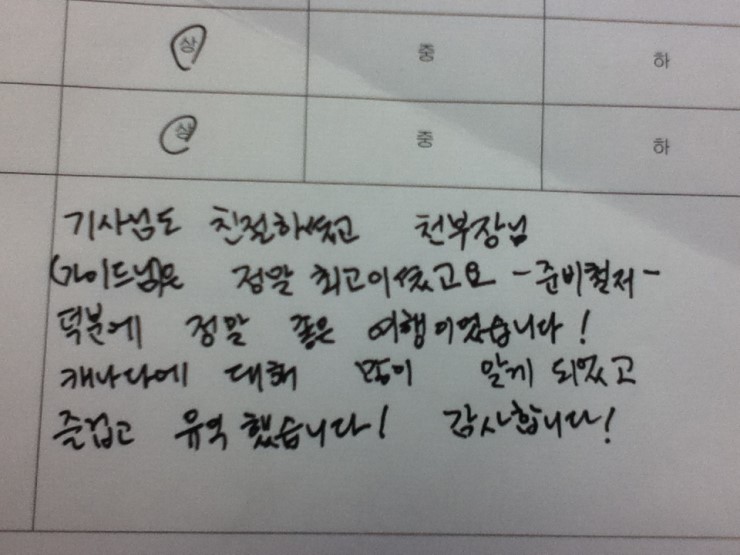 상 중 하
상 중 하
기사님도 친절하셨고 천부장님
(가이드님)은 정말 최고이셨고요 -준비철저-
덕분에 정말 좋은 여행이었습니다!
캐나다에 대해 많이 알게 되었고
즐겁고 유익했습니다! 감사합니다!